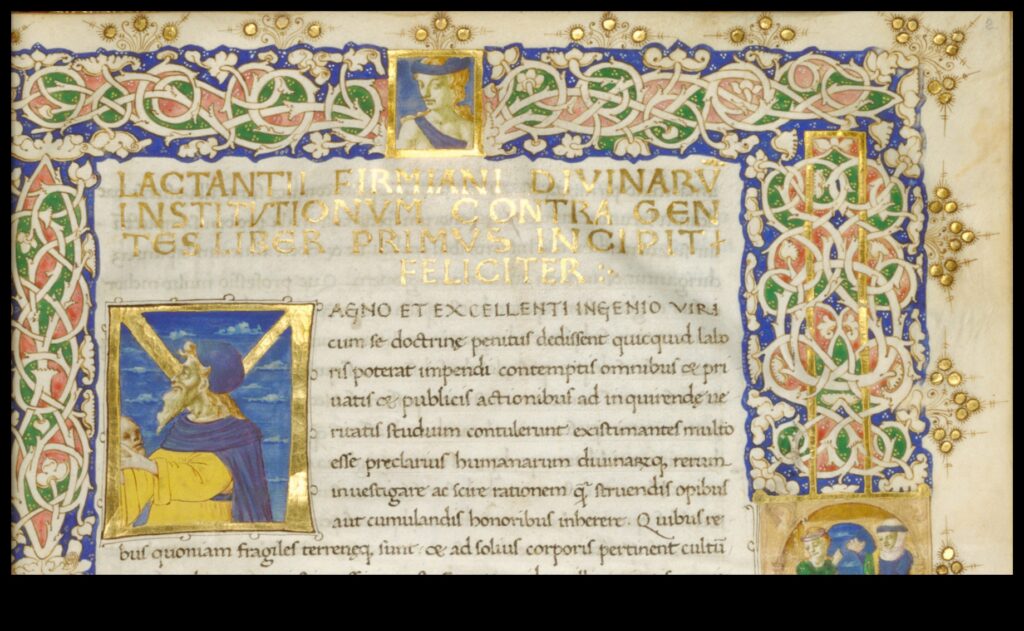 LACTANTII FIRMIANI DIVINARŪ
INSTITVTIONVM CONTRA GEN
TES LIBER PRIMVS INCIPIT
FELICITER :
MAGNO ET EXCELLENTI INGENIO VIRI
cum se doctrinę penitus dedissent quicquid labo
ris poterat impendi contemptis omnibus & pri
uatis & publicis actionibus ad inquirendę ue
ritatis studium contulerunt existimantes multo
esse preclarius humanarum diuinarūq, rerum
inuestigare ac scire rationem q̃ struendis opibus
aut cumulandis honoribus inherere. Quibus re
bus quoniam fragiles terreneq, sunt & ad solius corporis pertinent cultū